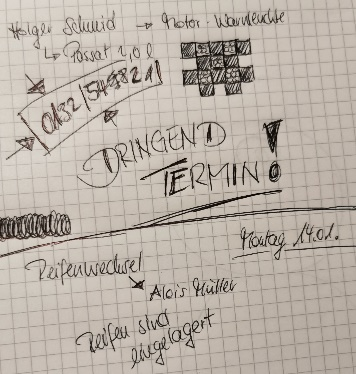 Holger Schmid → Motor-Warnleuchte
↳ Passat 2,0l
DRINGEND !
TERMIN
Montag 14.01.
Reifenwechsel
→ Alois Müller
Reifen sind
eingelagert